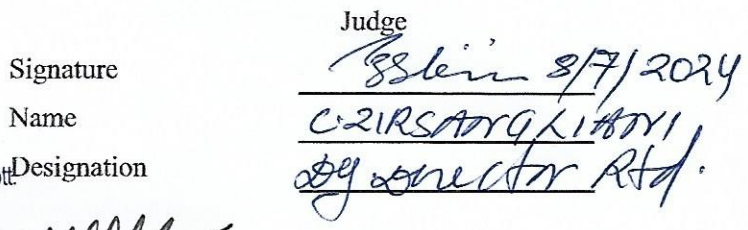 Judge
Signature 8/7/2024
Name C. ZIRSANGLIANI
Designation Dy Director Rtd.